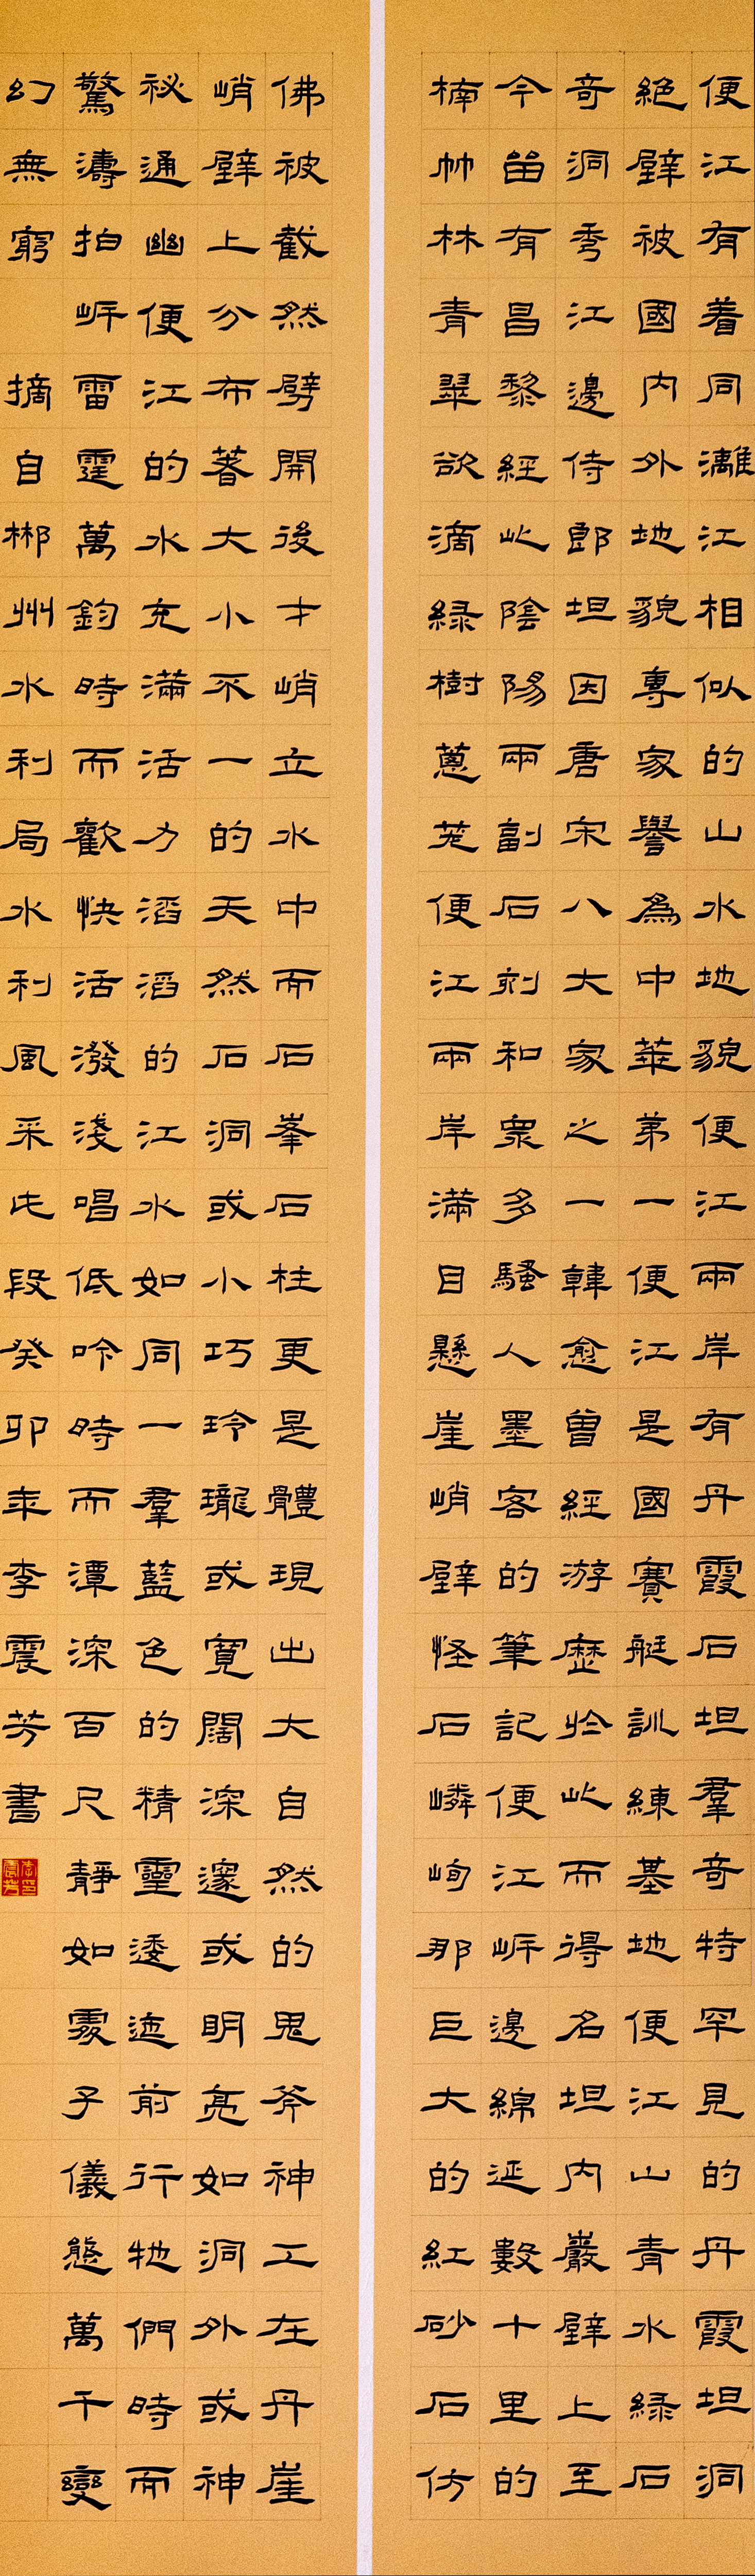 便江有着同灕江相似的山水地貌便江兩岸有丹霞石坦羣奇特罕見的丹霞坦洞
絕壁被國內外地貌專家譽為中華弟一便江是國賽艇訓練基地便江山青水綠石
奇洞秀江邊侍郎坦因唐宋八大家之一韓愈曾經游歷於此而得名坦內巖壁上至
今留有昌黎經此陰陽兩副石刻和眾多騷人墨客的筆記便江岍邊綿延數十里的
楠竹林青翠欲滴綠樹蔥茏便江兩岸滿目懸崖峭壁怪石嶙峋那巨大的紅砂石仿
佛被截然劈開後才峭立水中而石峯石柱更是體現出大自然的鬼斧神工在丹崖
峭壁上分布著大小不一的天然石洞或小巧玲瓏或寬闊深邃或明亮如洞外或神
祕通幽便江的水充滿活力滔滔的江水如同一羣藍色的精靈逶迤前行牠們時而
驚濤拍岍雷霆萬鈞時而歡快活潑淺唱低吟時而潭深百尺靜如處子儀態萬千變
幻無窮 摘自郴州水利局水利風采段癸卯年李震芳書